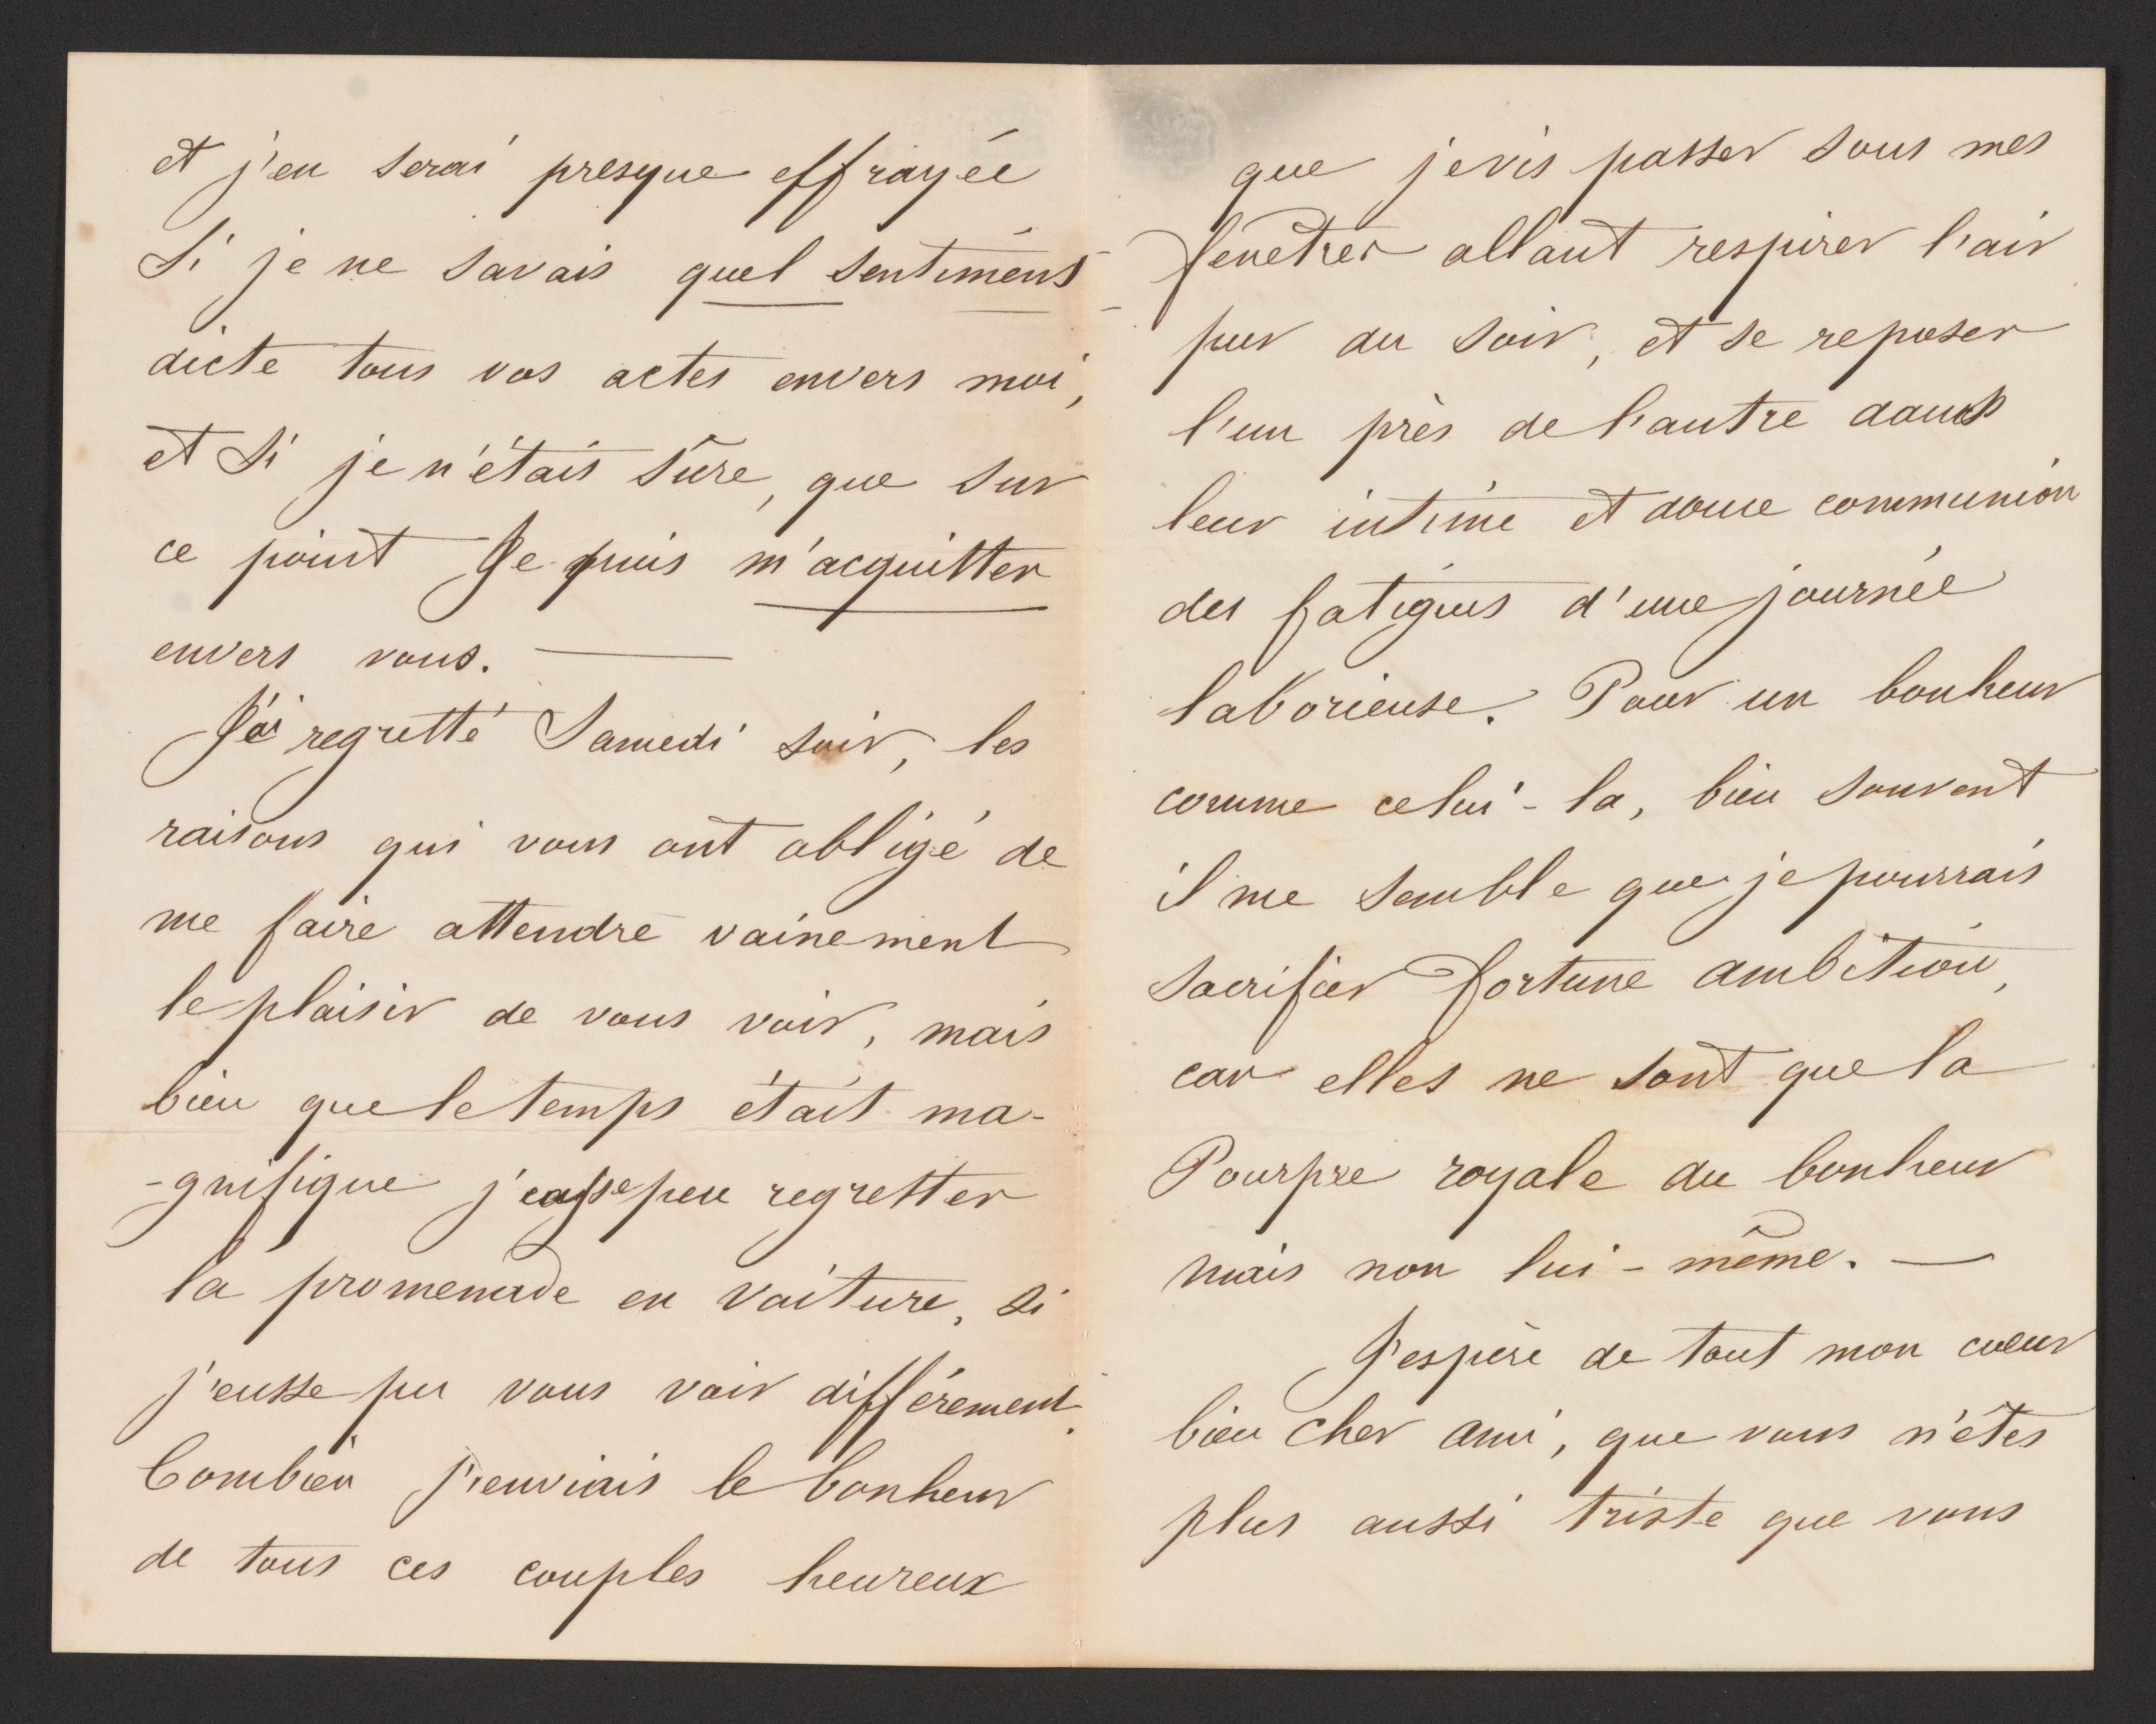 et j'en serai presque effrayée
Si je ne savais quel sentiment
dicte tous vos actes envers moi,
et Si je n'étais sûre, que sur
ce point Je puis m'acquitter
envers vous. —
J'ai regretté Samedi soir, les
raisons qui vous ont obligé de
me faire attendre vainement
le plaisir de vous voir, mais
bien que le temps était ma-
-gnifique j'eusse peu regretter
la promenade en voiture, si
j'eusse pu vous voir différement.
Combien j'enviais le bonheur
de tous ces couples heureux
que je vis passer sous mes
fenêtres allant respirer l'air
pur du soir, et se reposer
l'un près de l'autre dans
leur intime et douce communion
des fatigues d'une journée
laborieuse. Pour un bonheur
comme celui-la, bien souvent
il me semble que je pourrais
sacrifier fortune ambition,
car elles ne sont que la
Pourpre royale du bonheur
mais non lui-même. —
J'espère de tout mon cœur
bien cher ami, que vous n'êtes
plus aussi triste que vous